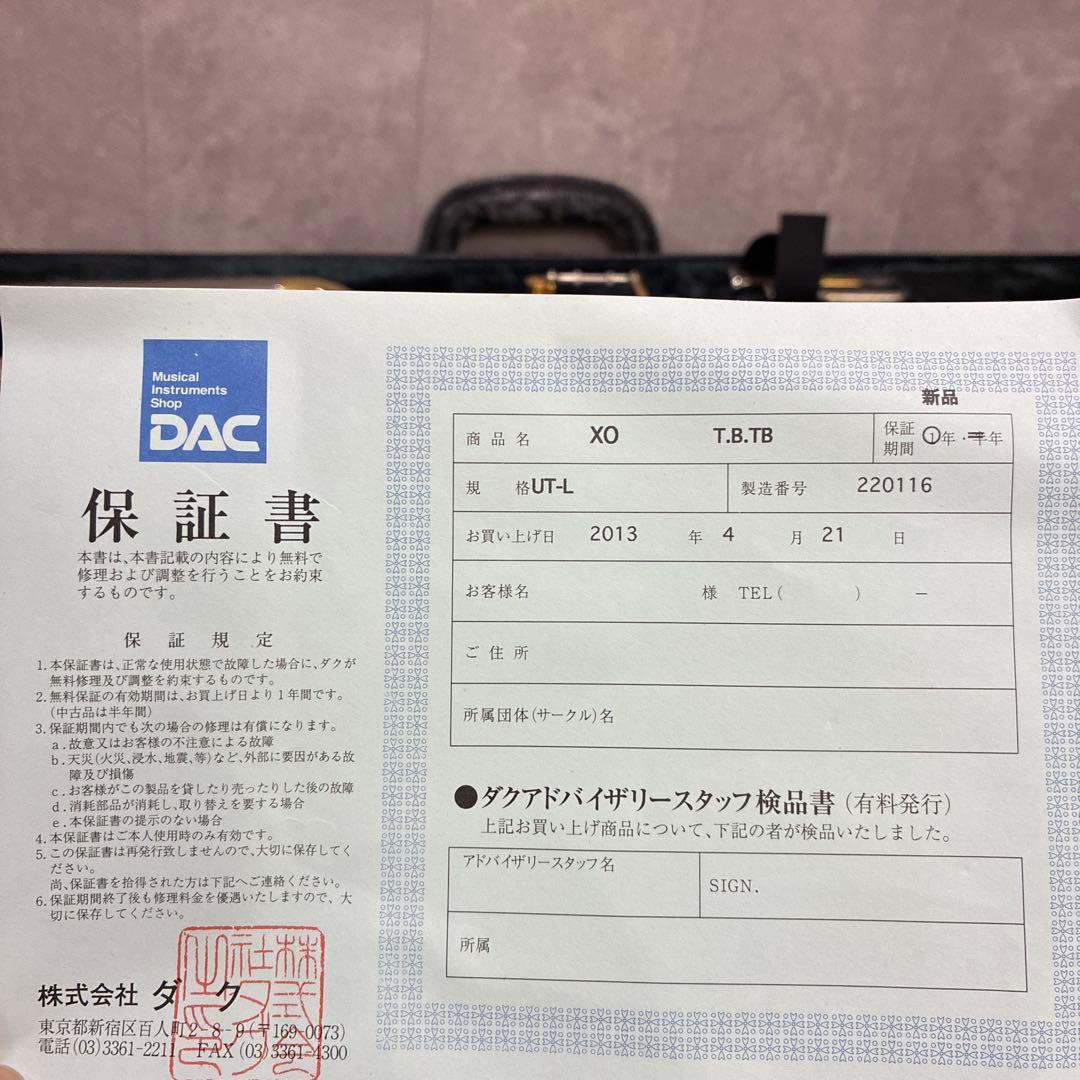 Musical
Instruments
Shop
DAC
保証書
本書は、本書記載の内容により無料で
修理および調整を行うことをお約束
するものです。
保証規定
1.本保証書は、正常な使用状態で故障した場合に、ダクが
無料修理及び調整を約束するものです。
2.無料保証の有効期間は、お買上げ日より1年間です。
(中古品は半年間)
3.保証期間内でも次の場合の修理は有償になります。
a.故意又はお客様の不注意による故障
b.天災(火災、浸水、地震、等)など、外部に要因がある故
障及び損傷
c.お客様がこの製品を貸したり売ったりした後の故障
d.消耗部品が消耗し、取り替えを要する場合
e.本保証書の提示のない場合
4.本保証書はご本人使用時のみ有効です。
5.この保証書は再発行致しませんので、大切に保存してく
ださい。
尚、保証書を拾得された方は下記へご連絡ください。
6.保証期間終了後も修理料金を優遇いたしますので、大
切に保存してください。
株式会社 ダク
東京都新宿区百人町2-8-9(〒169-0073)
電話(03)3361-2211 FAX(03)3361-4300
新品
商品名 XO T.B.TB 保証期間 1年・半年
規格 UT-L 製造番号 220116
お買い上げ日 2013 年 4 月 21 日
お客様名 様 TEL( ) −
ご住所
所属団体(サークル)名
●ダクアドバイザリースタッフ検品書(有料発行)
上記お買い上げ商品について、下記の者が検品いたしました。
アドバイザリースタッフ名 SIGN.
所属